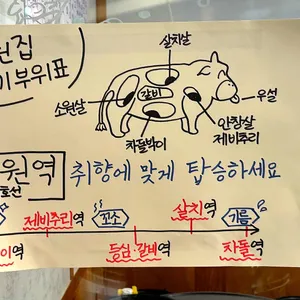 원집
이부위표
살치살
갈비
소원살
우설
차돌박이
안창살
제비추리
원역
호선
취향에 맞게 탑승하세요
제비추리역
꼬소
살치역
기름
이역
등심.갈비역
차돌역